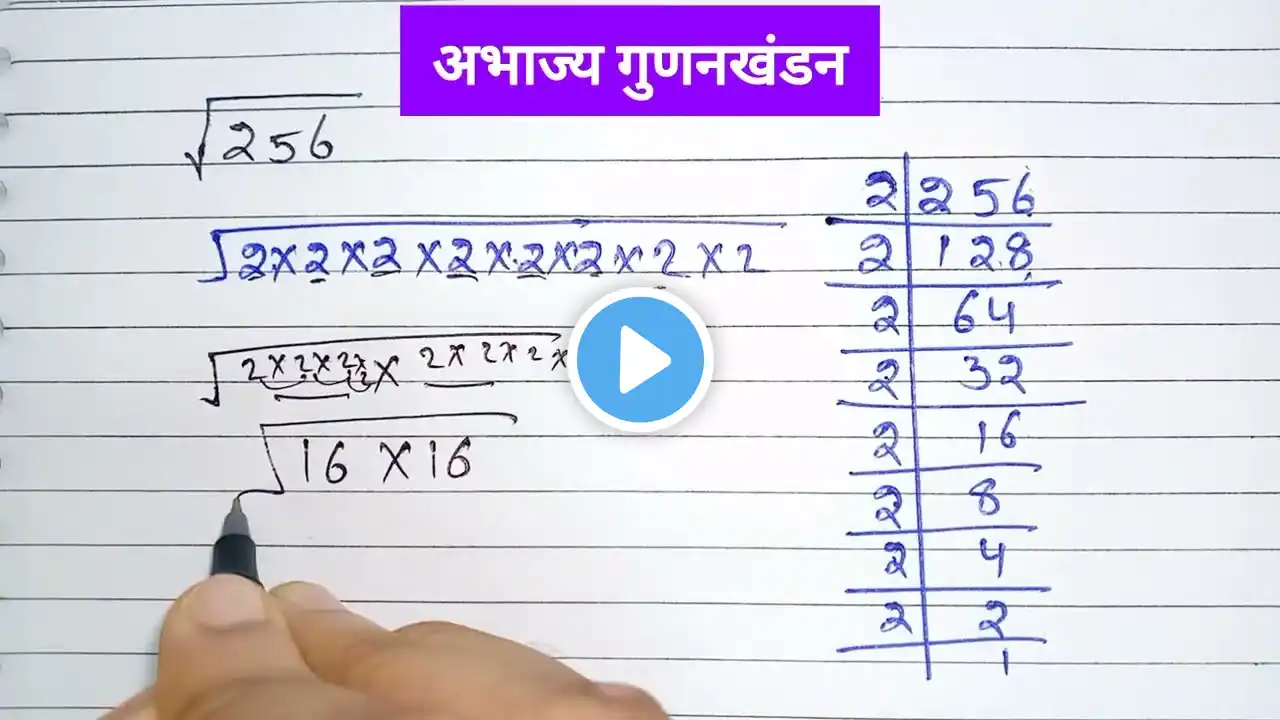 अभाज्य गुणनखंडन
√256
√2×2×2×2×2×2×2×2
√2×2×2×2× 2×2×2×
√16×16
2 | 256
2 | 128
2 | 64
2 | 32
2 | 16
2 | 8
2 | 4
2 | 2
1